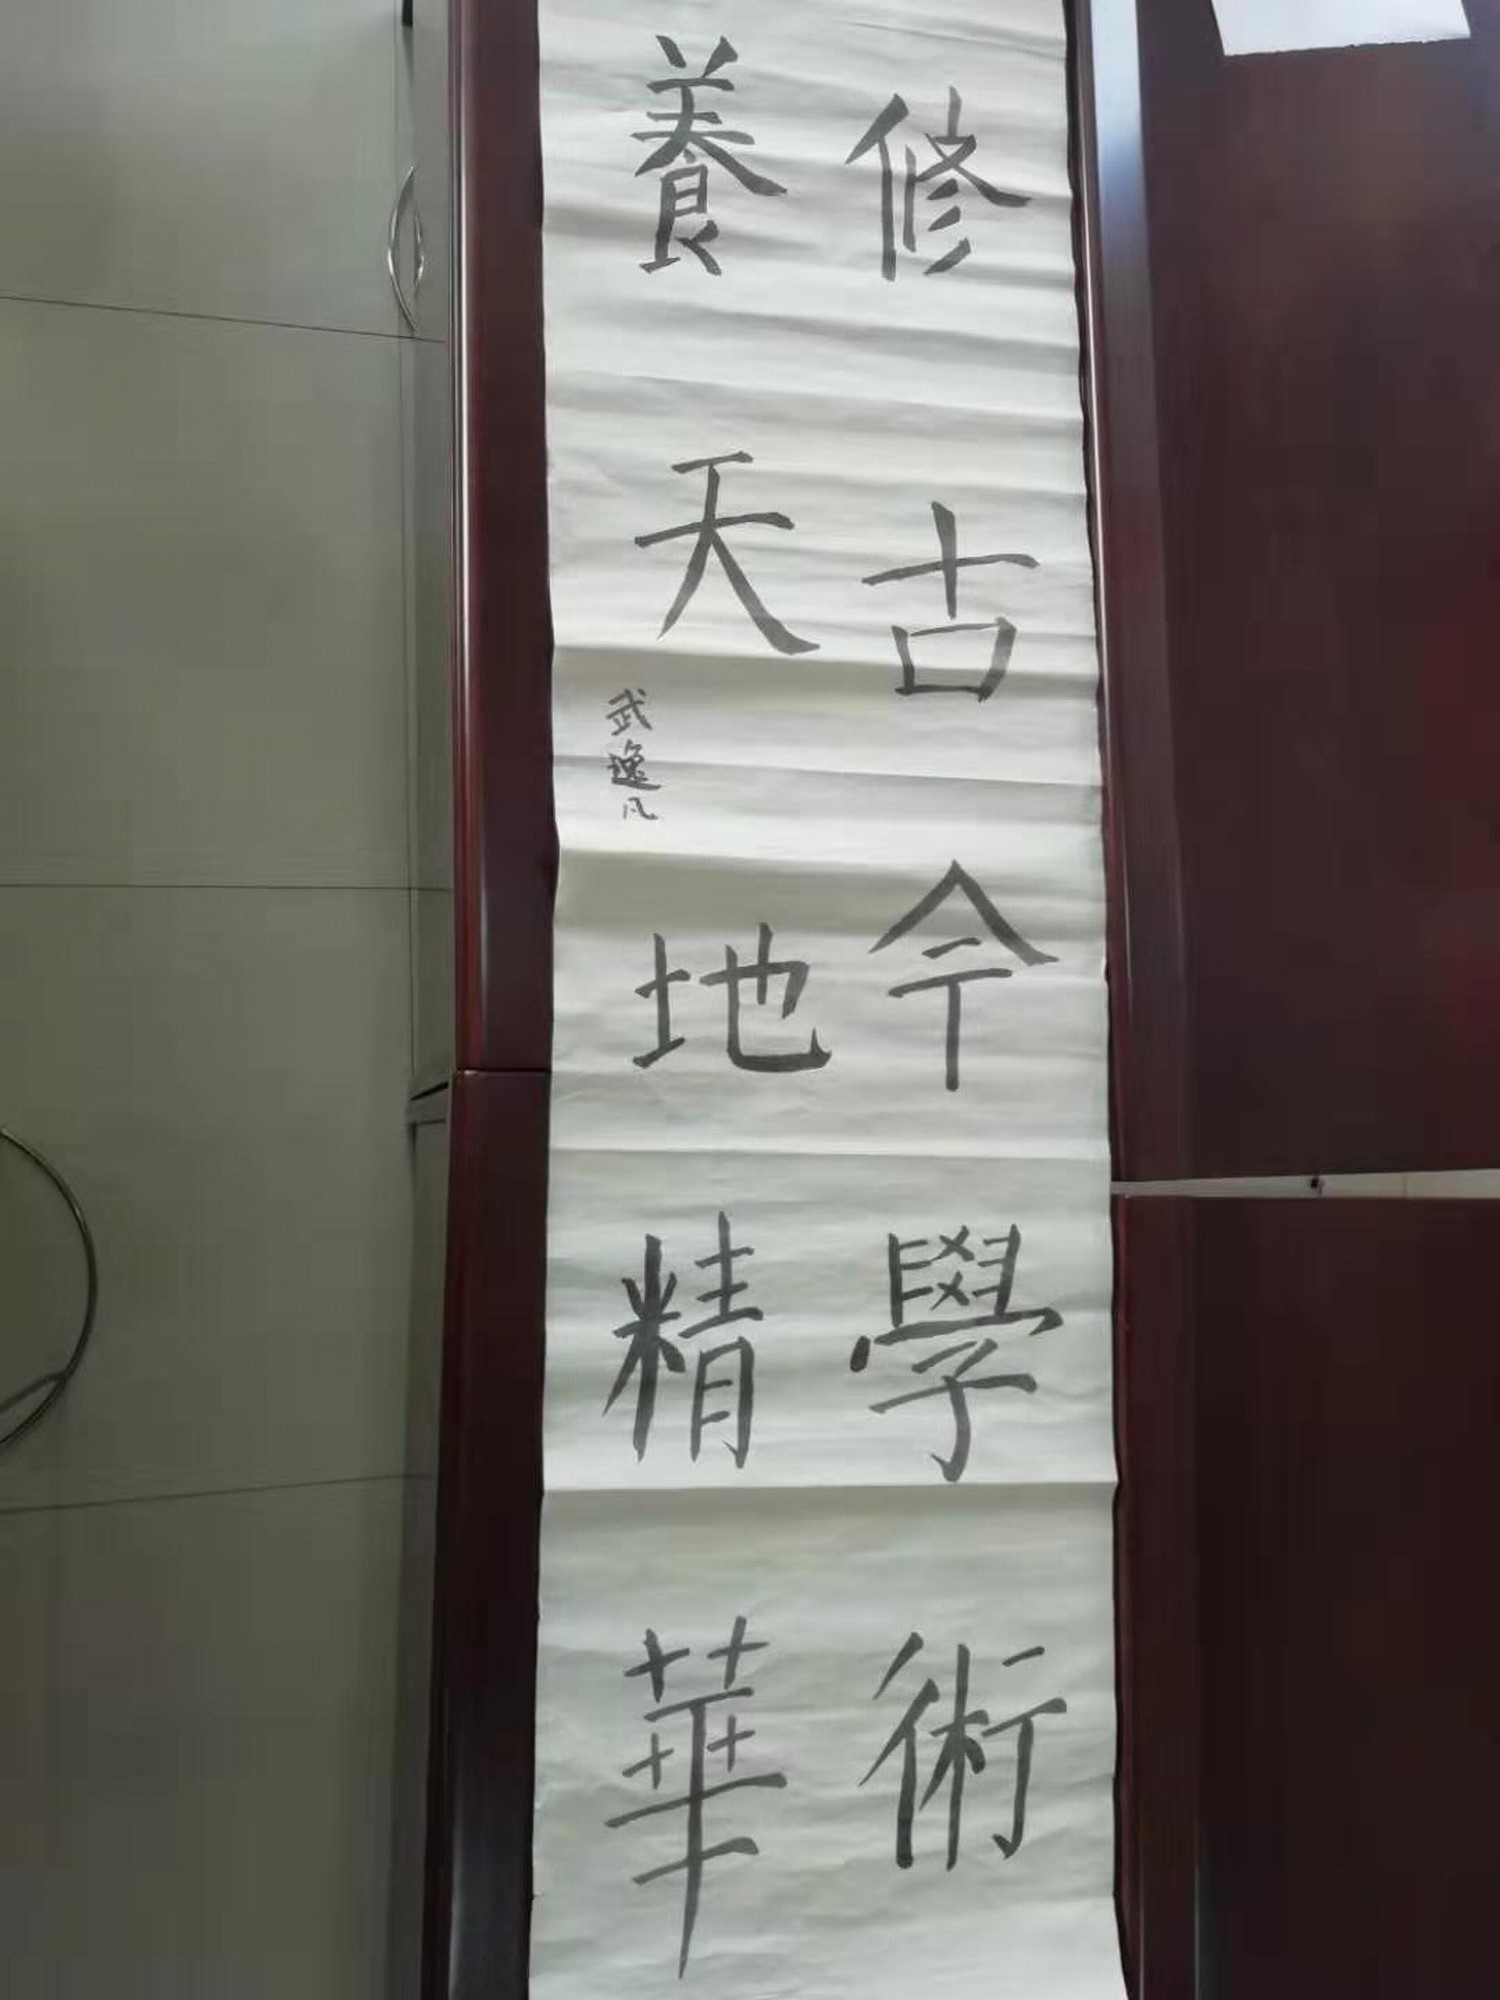 修古今學術
養天地精華
武逸凡